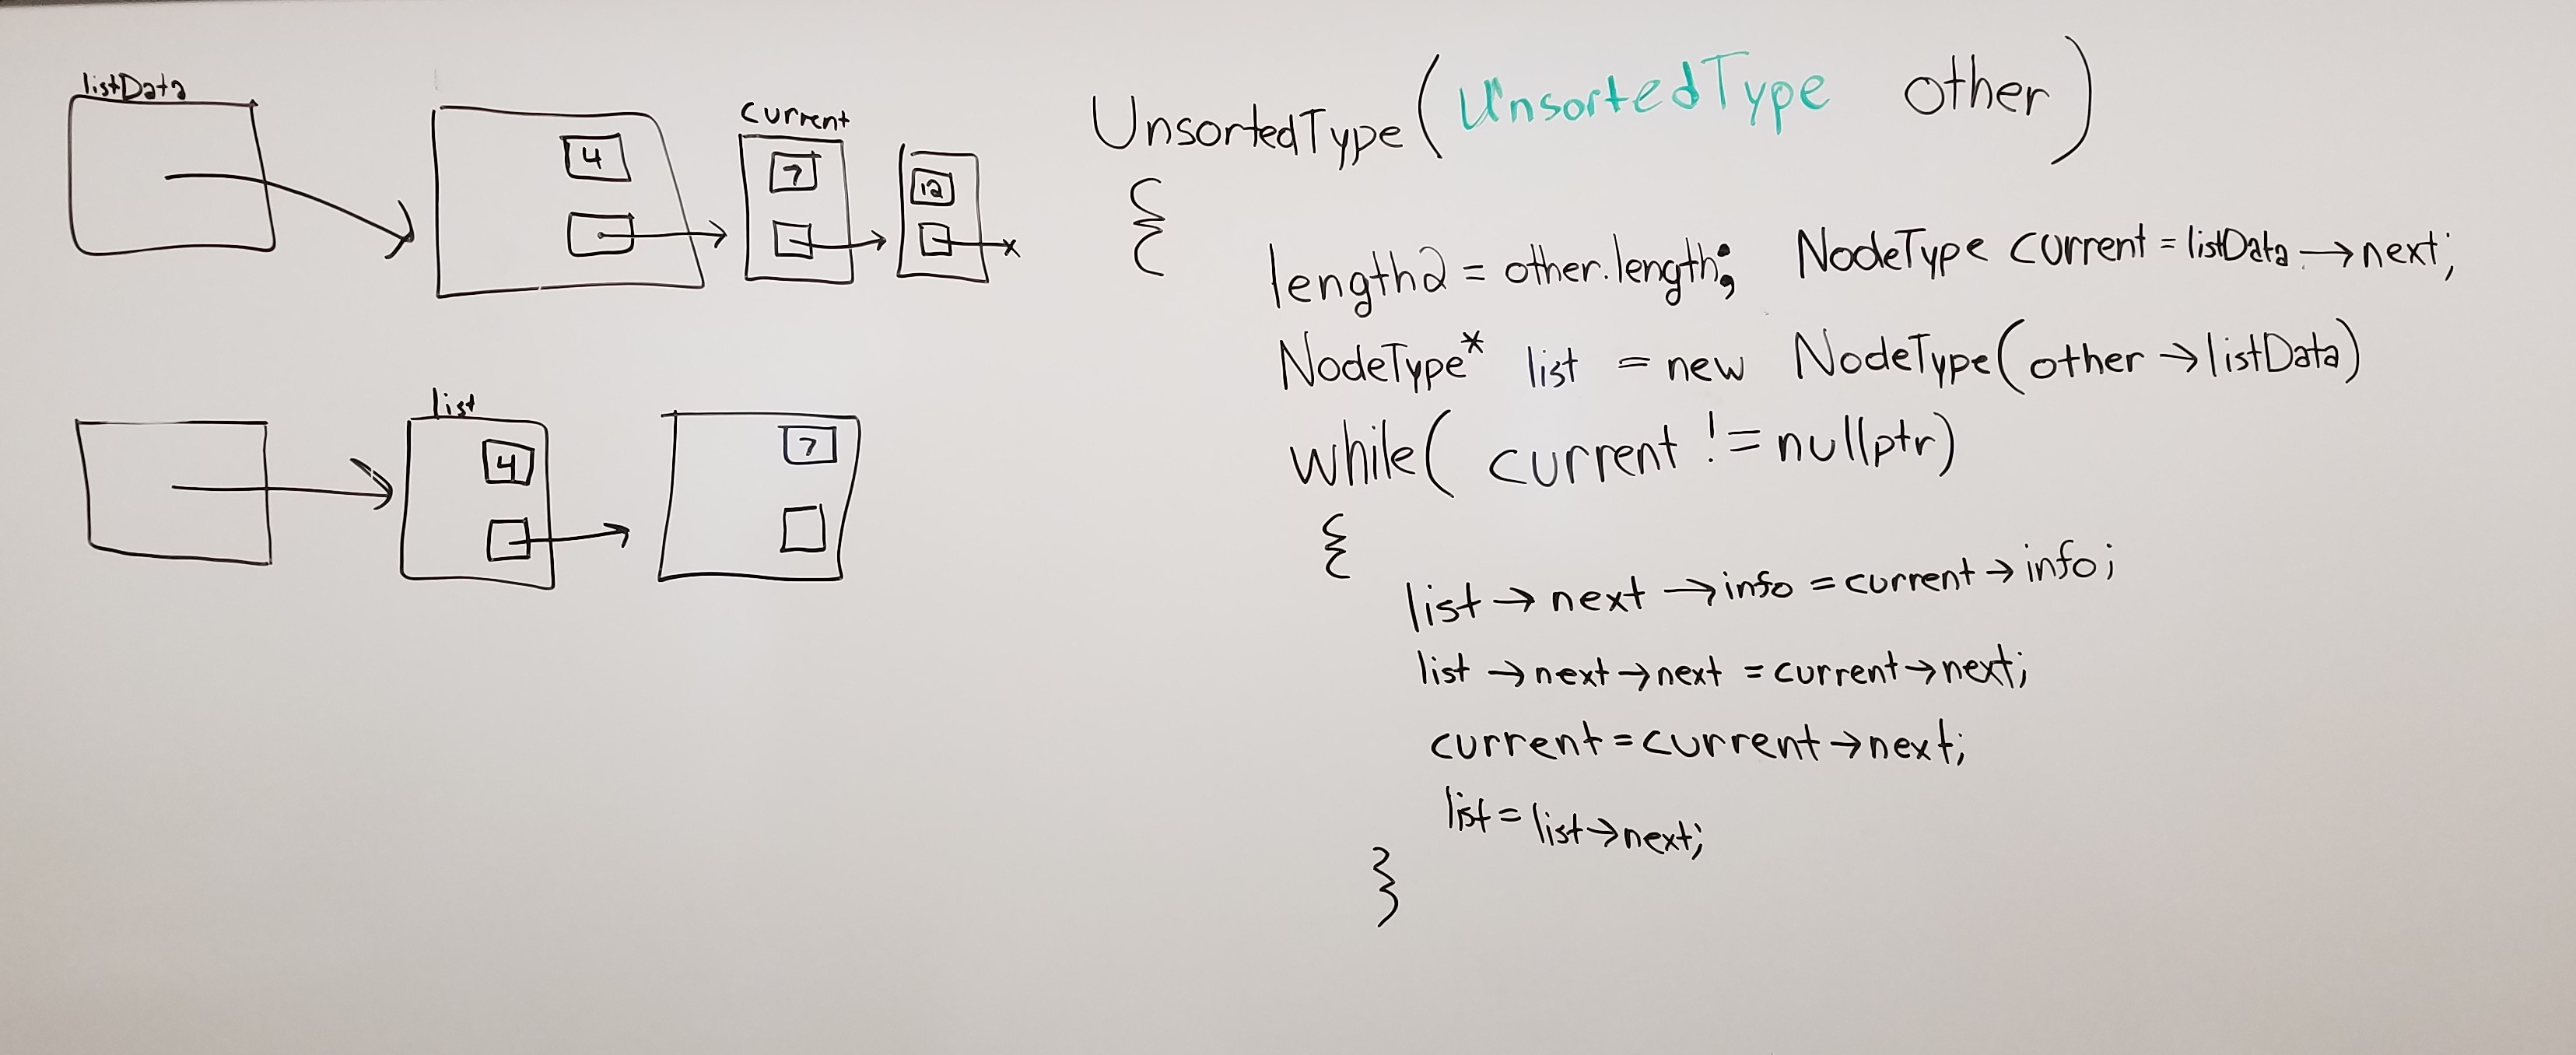 listData
4
current
7
12
list
4
7
UnsortedType(UnsortedType other)
{
length2 = other.length; NodeType current = listData→next;
NodeType* list = new NodeType(other→listData)
while( current != nullptr)
{
list→next→info = current→info;
list→next→next = current→next;
current = current→next;
list = list→next;
}